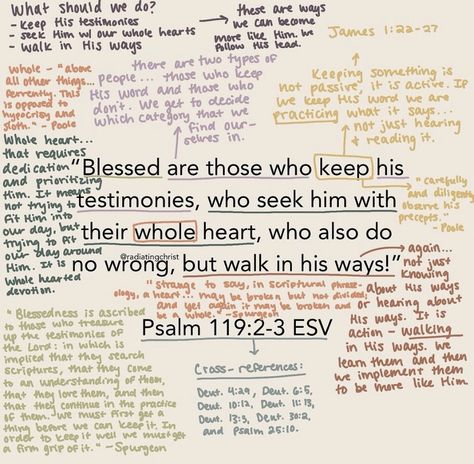 What should we do?
- keep His testimonies
- seek Him w/ our whole hearts
- walk in His ways
these are ways
we can become
more like Him. We
follow His lead.
James 1:22-27
Whole - "above
all other things...
fervently. This
is opposed to
hypocrisy and
sloth." - Poole
there are two types of
people... those who keep
His word and those who
don't. We get to decide
which category that we
find our-
selves in.
Keeping something is
not passive, it is active. If
we keep His word we are
practicing what it says...
not just hearing
& reading it.
Whole heart...
that requires
dedication
and prioritizing
Him. It means
not trying to
fit Him into
our day, but
trying to fit
our day around
Him. It is
whole hearted
devotion.
"Blessed are those who keep his
testimonies, who seek him with
their whole heart, who also do
no wrong, but walk in his ways!"
@radiatingchrist
Psalm 119:2-3 ESV
"carefully
and diligently
observe his
precepts."
- Poole
again...
not just
knowing
about His ways
or hearing about
His ways. It is
action - walking
in His ways. We
learn them and then
we implement them
to be more like Him
"strange to say, in scriptural phrase-
ology, a heart... may be broken but not divided;
and yet again it may be broken and
be a whole." - Spurgeon
"Blessedness is ascribed
to those who treasure
up the testimonies of
the Lord: in which is
implied that they search
scriptures, that they come
to an understanding of them,
that they love them, and then
that they continue in the practice
of them. We must first get a
thing before we can keep it. In
order to keep it well we must get
a firm grip of it." - Spurgeon
Cross-references:
Deut. 4:29, Deut. 6:5,
Deut. 10:12, Deut. 11:13,
Deut. 13:3, Deut. 30:2,
and Psalm 25:10.